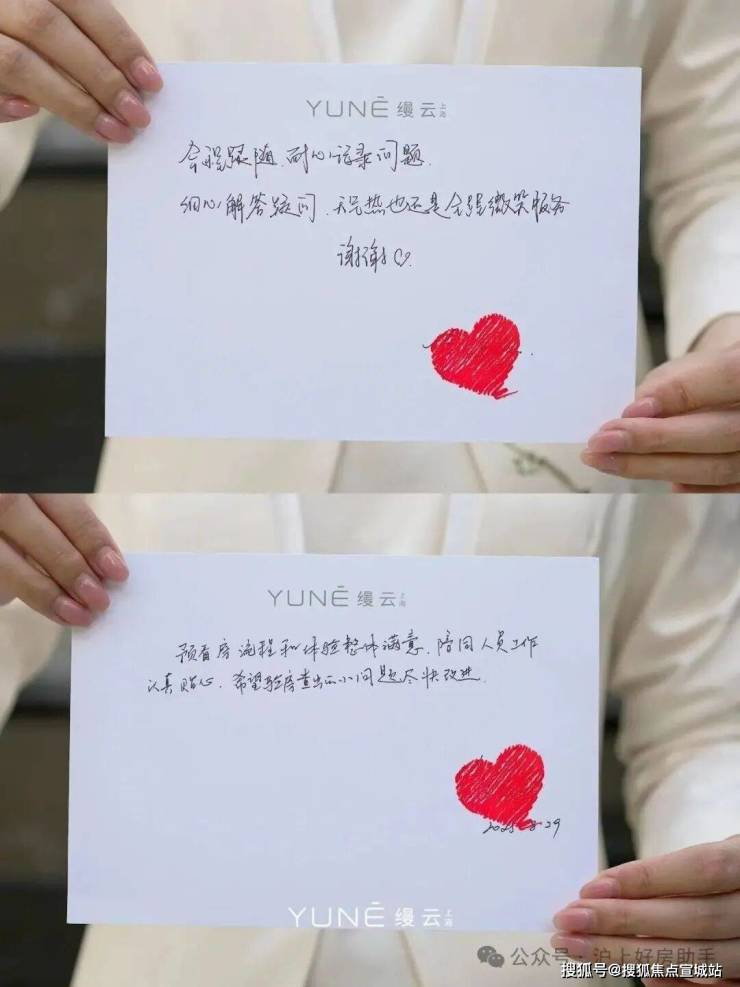 YUNĒ 缦云 上海
全程跟随、耐心记录问题.
细心解答疑问、天气热也还是全程微笑服务
谢谢♡.
YUNĒ 缦云 上海
预看房流程和体验整体满意、陪同人员工作
认真贴心、希望验房查出的小问题尽快改进.
2025-8-29
YUNĒ 缦云 上海
公众号·沪上好房助手
搜狐号@搜狐焦点宣城站